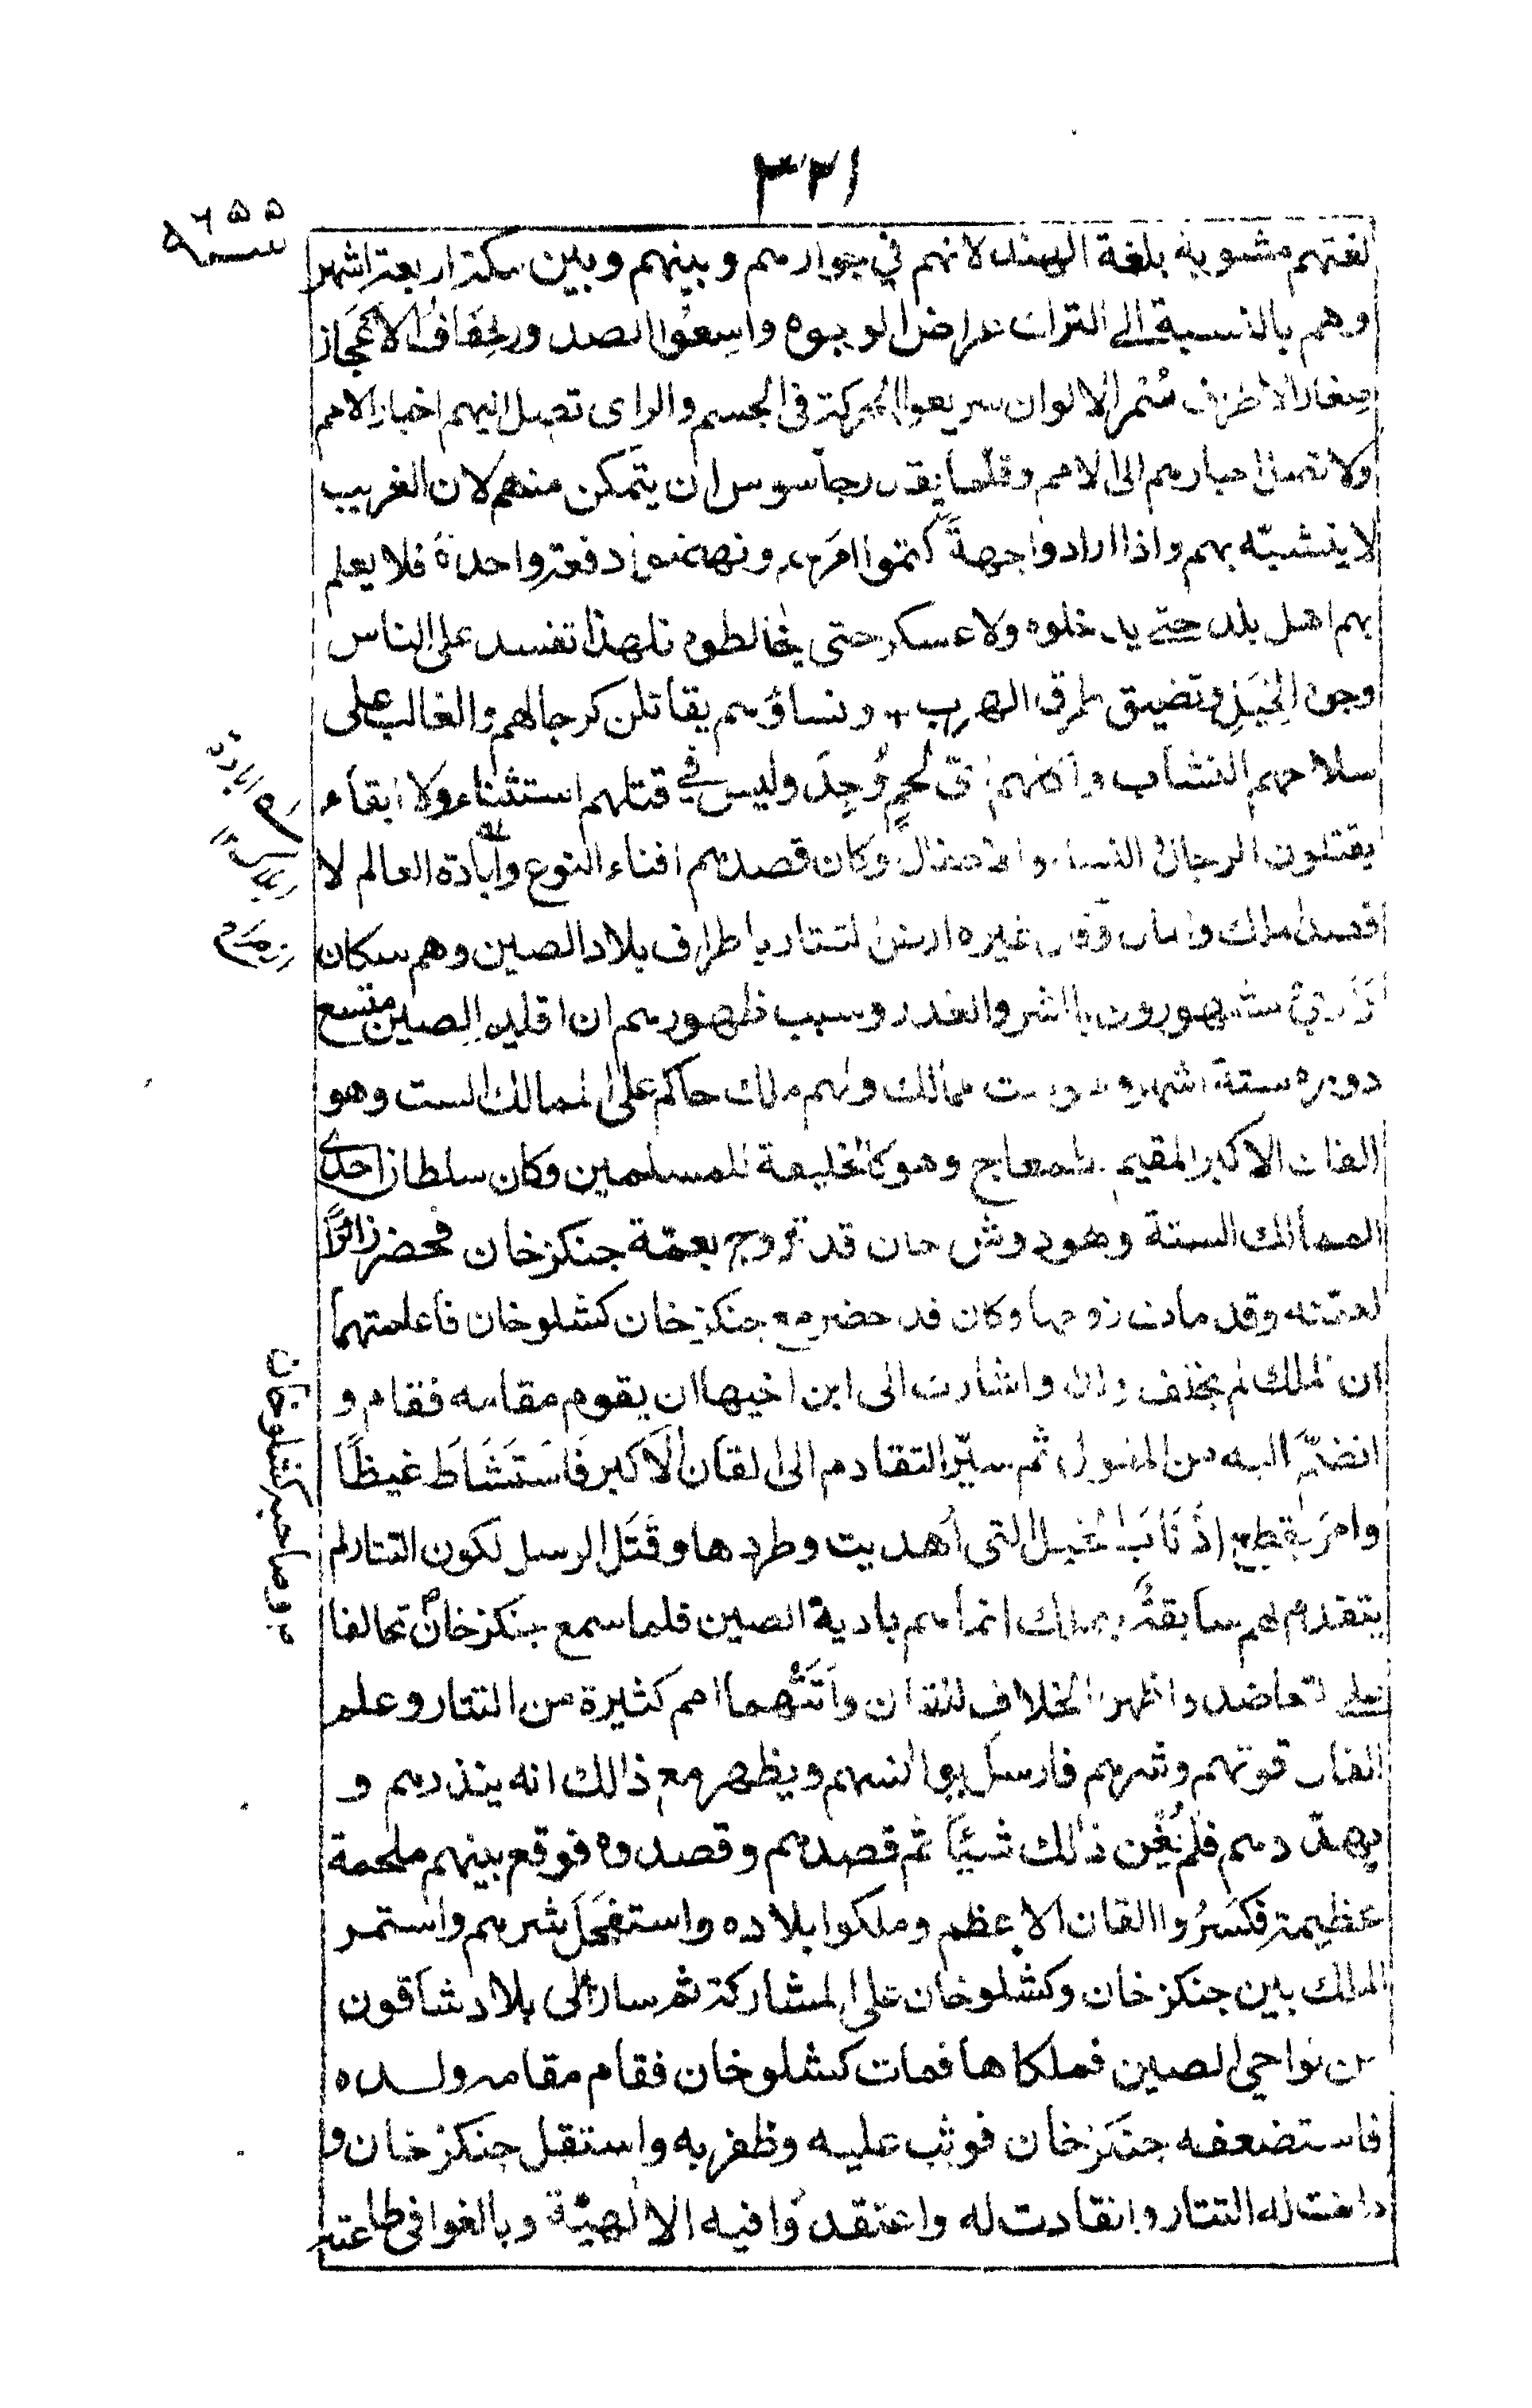 ٣٢١
سنة ٦٥٥
لغتهم مشوبة بلغة الهند لانهم في جوارهم وبينهم وبين مكة اربعة اشهر
وهم بالنسبة الى الترك عراض الوجوه واسعوا الصدور خفاف الاعجاز
صغار الاطراف سُمر الالوان سريعوا الحركة فى الجسم والراى تصل اليهم اخبار الامم
ولا تصل اخبارهم الى الامم وقلّما يقدر جاسوس ان يتمكن منهم لان الغريب
لا يتشبّه بهم واذا ارادوا جهةً كتموا امرهم ونهضوا دفعة واحدة فلا يعلم
بهم اهل بلد حتى يدخلوه ولا عسكر حتى يخالطوه فلهذا تفسد على الناس
وجوه الحِيَل وتضيق طرق الهرب ونساؤهم يقاتلن كرجالهم والغالب على
سلاحهم النشاب واكلهم اى لحمٍ وُجِدَ وليس في قتلهم استثناء ولا ابقاء
يقتلون الرجال والنساء والاطفال وكان قصدهم افناء النوع وابادة العالم لا
قصد الملك والمال وقال غيره ارض التتار باطراف بلاد الصين وهم سكان
برارى مشهورون بالشر والغدر وسبب ظهورهم ان اقليم الصين متسع
دوره ستة اشهر وهو ست ممالك ولهم ملك حاكم على الممالك الست وهو
القان الاكبر المقيم بطمغاج وهو كالخليفة للمسلمين وكان سلطان احدى
الممالك الستة وهو دوش خان قد تزوج بعمّة جنكزخان فحضر زائرًا
لعمّته وقد مات زوجها وكان قد حضر مع جنكزخان كشلوخان فاعلمتهما
ان الملك لم يخلف ولدا واشارت الى ابن اخيها ان يقوم مقامه فقام و
انضمّ اليه من المغول ثم سيّر التقادم الى القان الاكبر فاستشاط غيظًا
وامرَ بقطع اذناب الخيل التى اهديت وطردها وقَتَل الرسل لكون التتار لم
يتقدم لهم سابقةٌ بملك انما هم بادية الصين فلما سمع جنكزخان تحالفا
على التعاضد واظهر الخلاف للقان واتَتْهما امم كثيرة من التتار وعلم
القان قوتهم وشرهم فارسل يوالسهم ويظهر مع ذالك انه ينذرهم و
يهدّدهم فلم يُغْن ذالك شيئًا ثم قصدهم وقصدوه فوقع بينهم ملحمة
عظيمة فكسَرُوا القان الاعظم وملكوا بلاده واستفحَلَ شرهم واستمر
الملك بين جنكزخان وكشلوخان على المشاركة ثم سار الى بلاد شاقون
من نواحى الصين فملكاها فمات كشلوخان فقام مقامه ولده
فاستضعفه جنكزخان فوثب عليه وظفر به واستقل جنكزخان و
دانت له التتار وانقادت له واعتقدوا فيه الالهيّة وبالغوا فى طاعته
وصاحبه كشلوخان